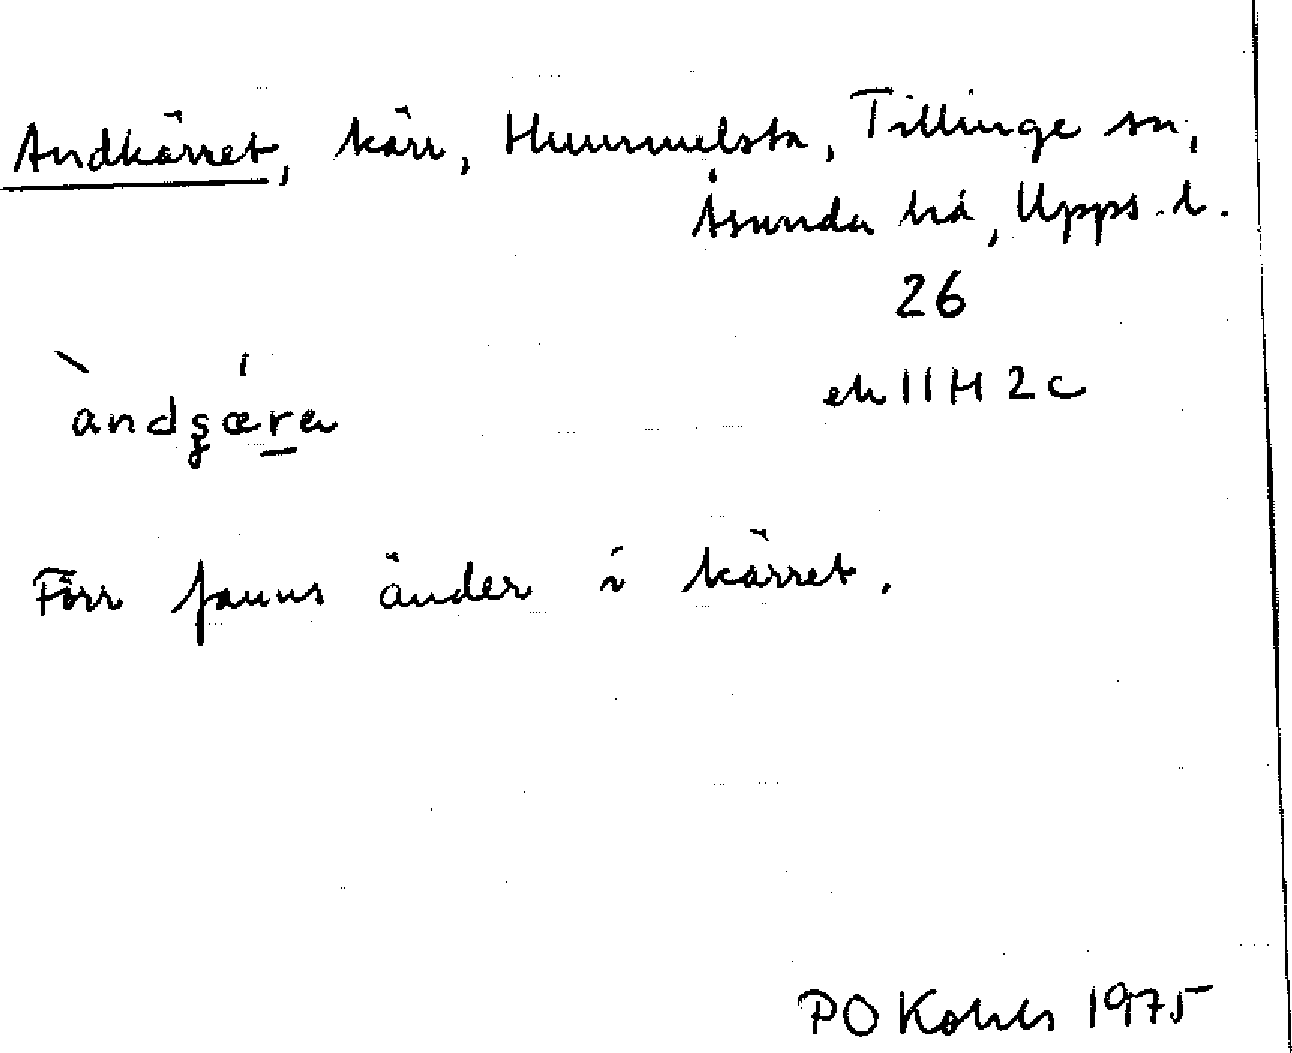 Andkärret, kärr, Hummelsta, Tillinge sn,
Åsunda hd, Upps. l.
26
ek 11H 2c
andȿæra
Förr fanns änder i kärret.
PO 1975